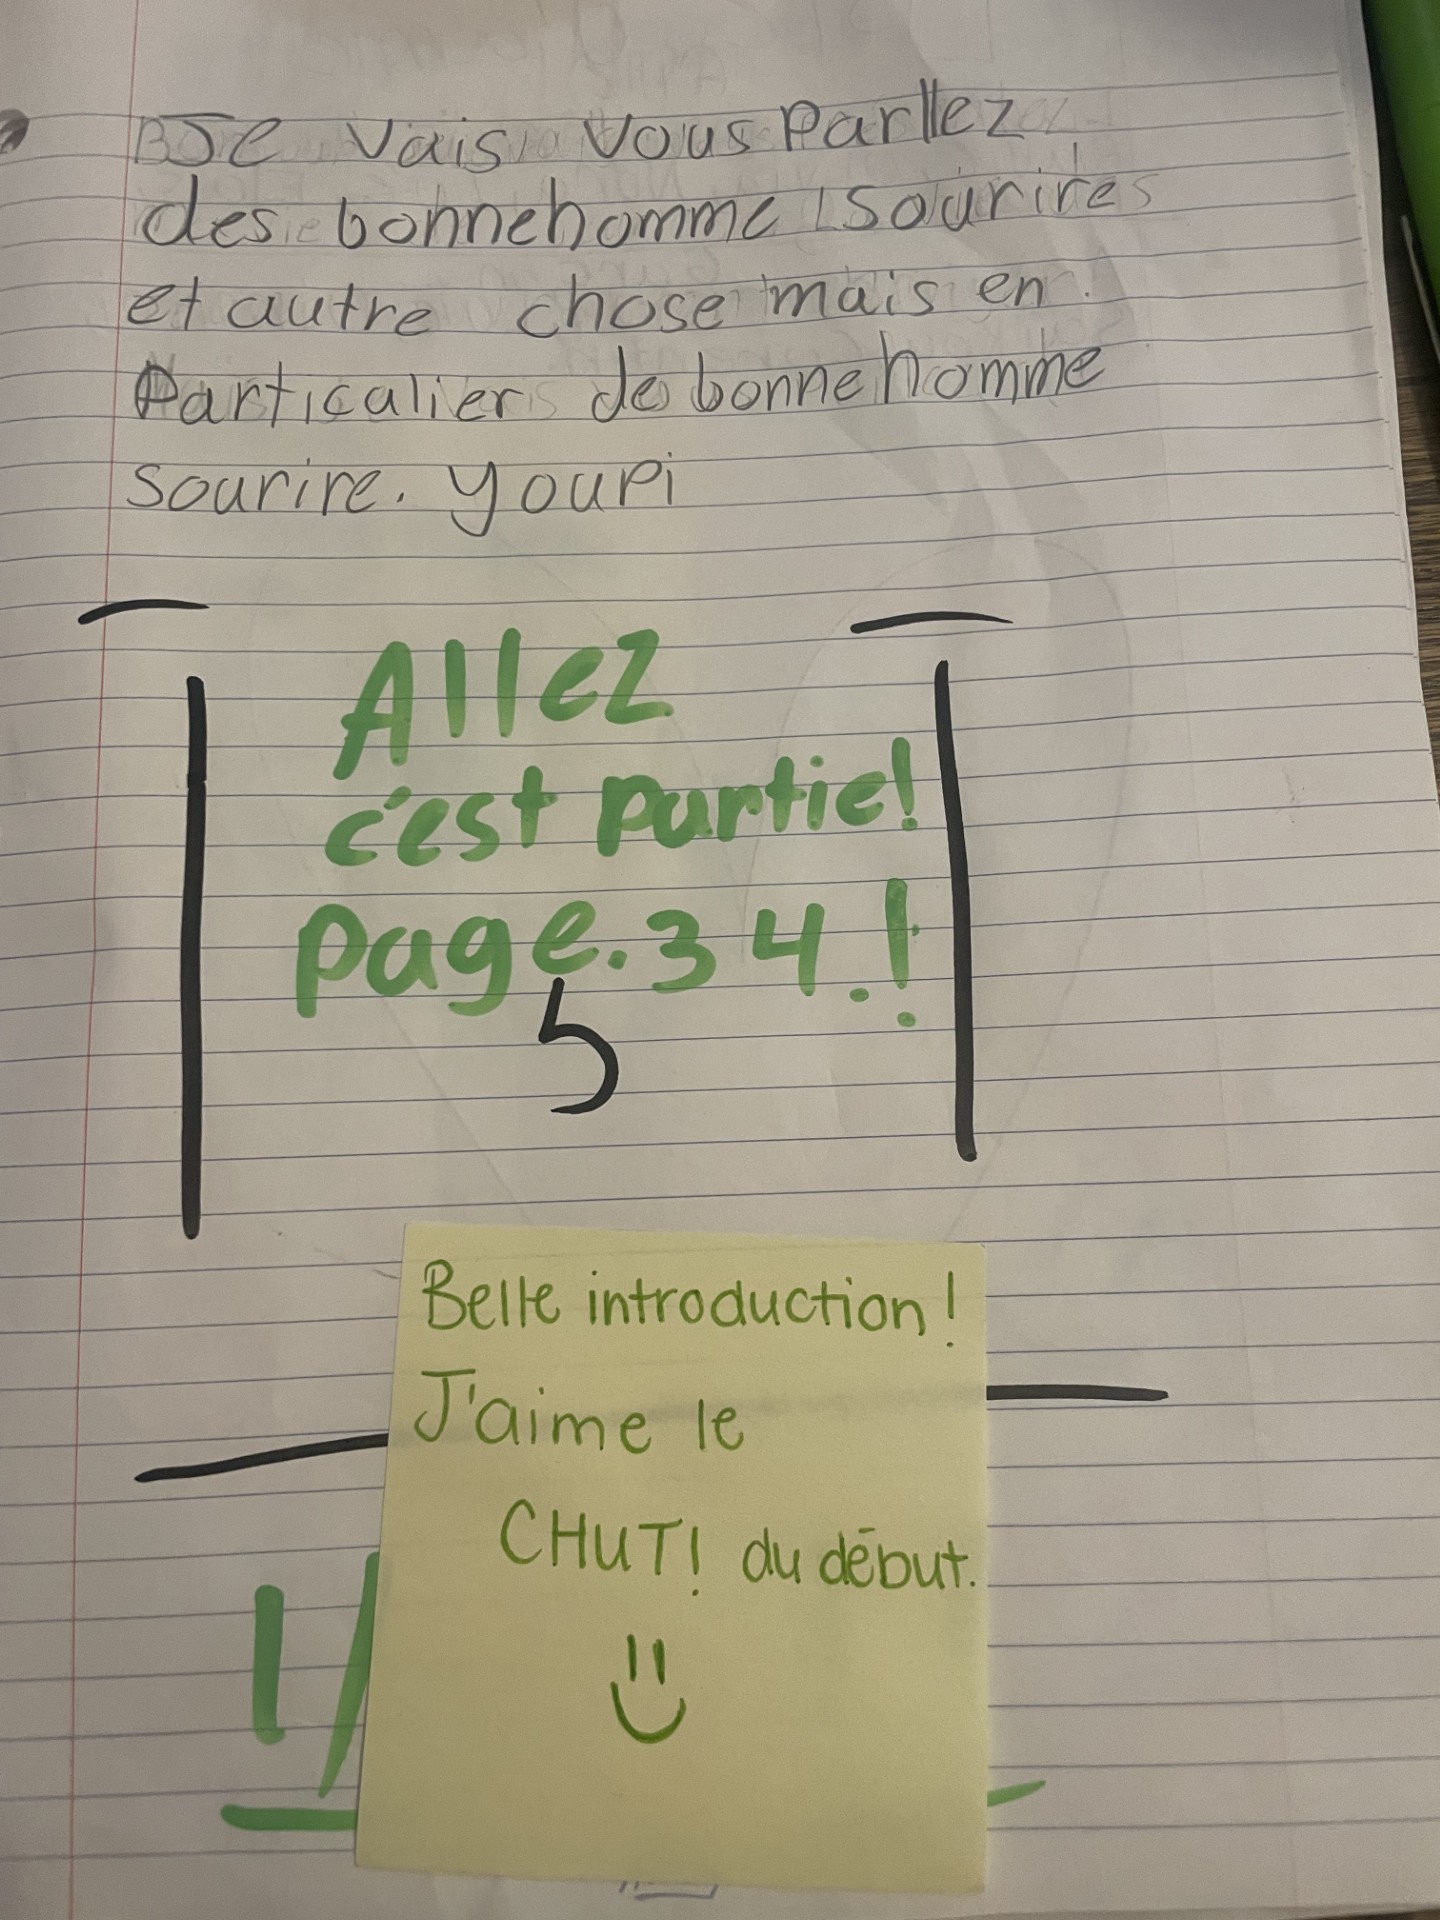 Je vais vous Parllez
des bonnehomme sourires
et autre chose mais en
Particalier de bonnehomme
sourire. youpi
Allez
c'est Partie!
page.34.!
5
Belle introduction!
J'aime le
CHUT! du début.
1/